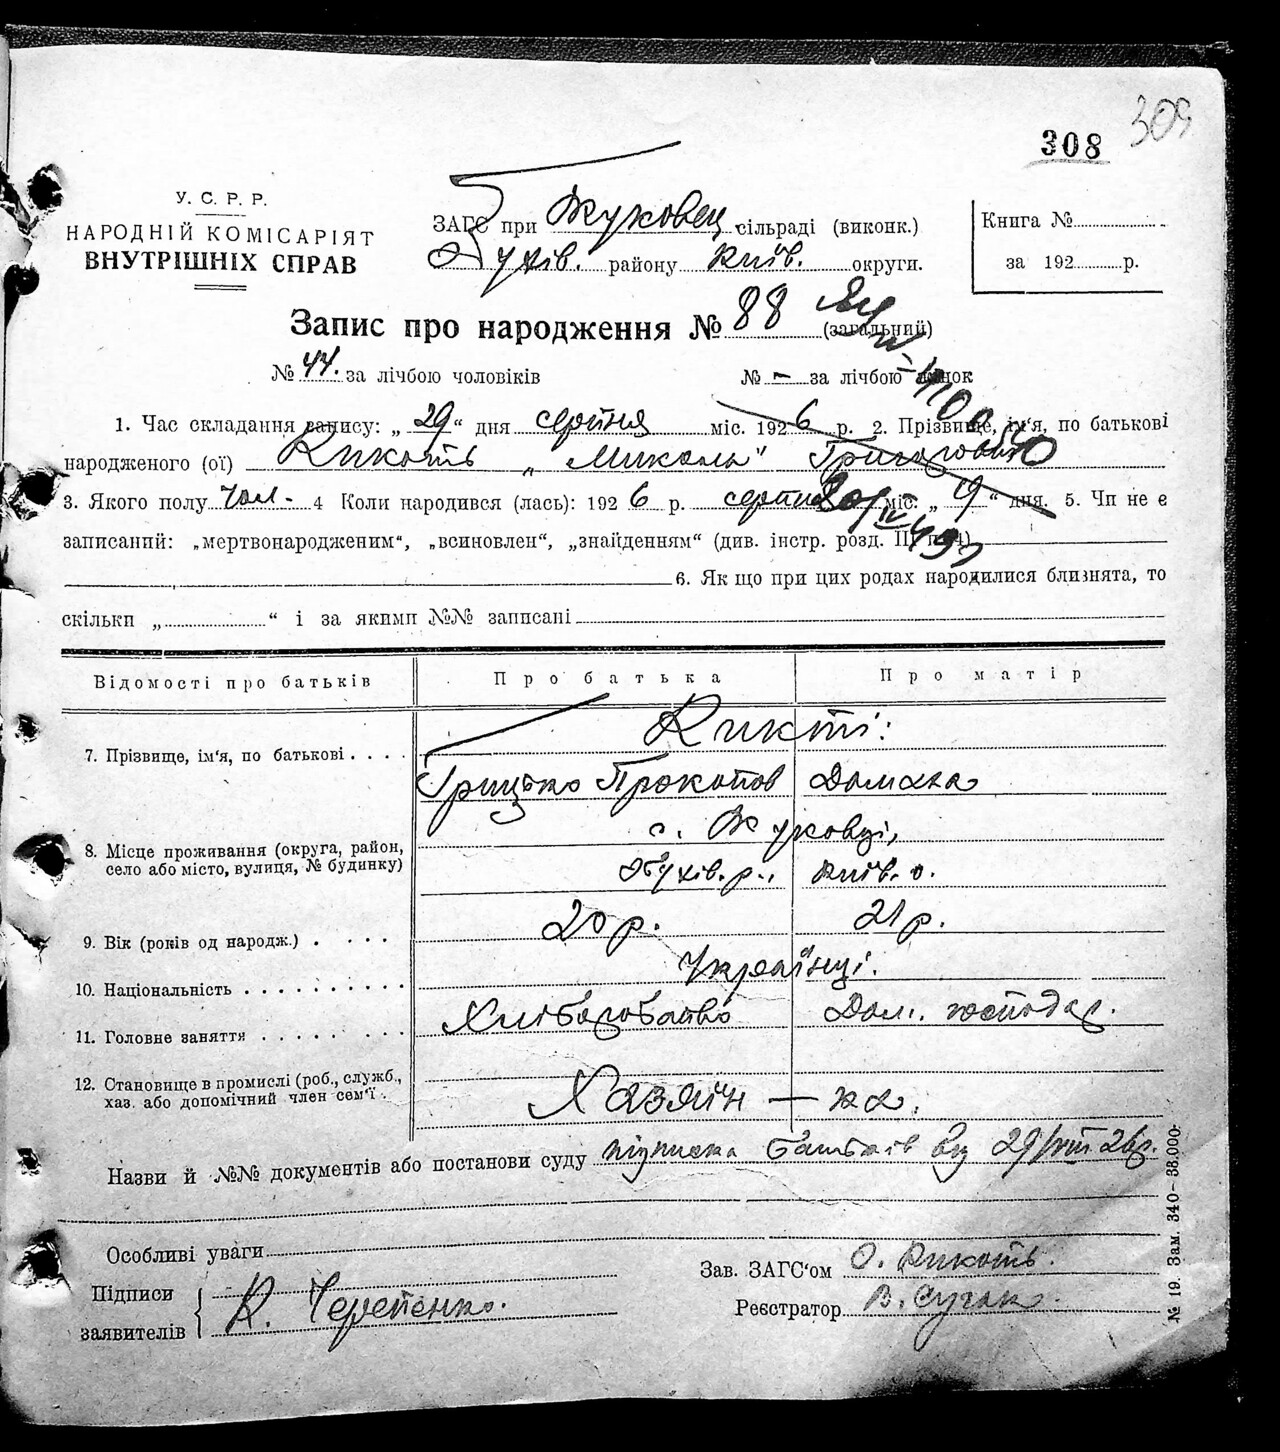 309
308
У. С. Р. Р.
НАРОДНІЙ КОМІСАРІЯТ
ВНУТРІШНІХ СПРАВ
ЗАГС при Жуковец сільраді (виконк.)
Обухів. району Київ. округи.
Книга №
за 192 р.
Запис про народження № 88 (загальний)
№ 44. за лічбою чоловіків № – за лічбою жінок
1. Час складання запису: „ 29 “ дня серпня міс. 1926 р. 2. Прізвище, ім'я, по батькові
народженого (ої) Кикоть „Микола“ Григорович
3. Якого полу чол. 4 Коли народився (лась): 1926 р. серпня міс. „ 19 “ дня. 5. Чи не є
записаний: „мертвонародженим“, „всиновлен“, „знайденням“ (див. інстр. розд. III п. 4)
6. Як що при цих родах народилися близнята, то
скільки „ “ і за якими №№ записані
Відомості про батьків Про батька Про матір
7. Прізвище, ім'я, по батькові Кикті:
Грицько Прокопов Домаха
8. Місце проживання (округа, район, село або місто, вулиця, № будинку) с. Жуковці,
Обухів. р., Київ. о.
9. Вік (років од народж.) 20 р. 21 р.
10. Національність Українці.
11. Головне заняття Хліборобство Дом. господар.
12. Становище в промислі (роб., служб., хаз. або допомічний член сем'ї Хазяїн — ка.
Назви й №№ документів або постанови суду підписка батьків від 29/VIII 26р.
Особливі уваги
Підписи
заявителів К. Черепенко.
Зав. ЗАГС'ом О. Кикоть.
Реєстратор В. Сугак.
№ 19. Зам. 340–38.000.